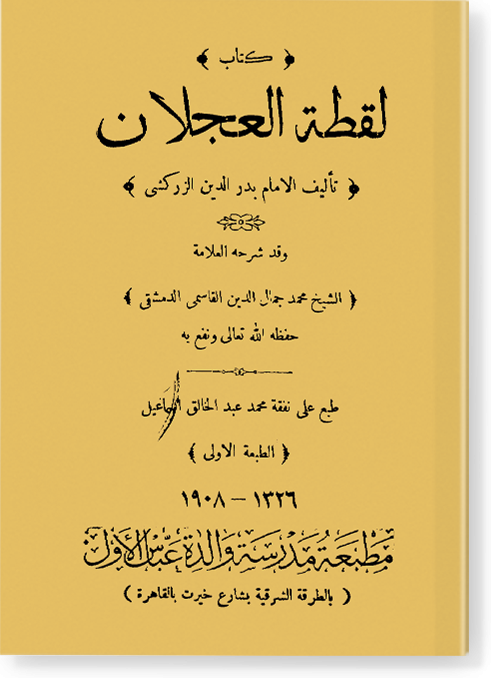 ﴿ كتاب ﴾
لقطة العجلان
﴿ تأليف الامام بدر الدين الزركشى ﴾
وقد شرحه العلامة
( الشيخ محمد جمال الدين القاسمى الدمشقى )
حفظه الله تعالى ونفع به
طبع على نفقة محمد عبد الخالق اسماعيل
( الطبعة الاولى )
١٣٢٦ – ١٩٠٨
مَطْبَعَة مَدْرَسَة وَالدِة عَبَّاسْ الأَوَّلْ
( بالطرقة الشرقية بشارع خيرت بالقاهرة )